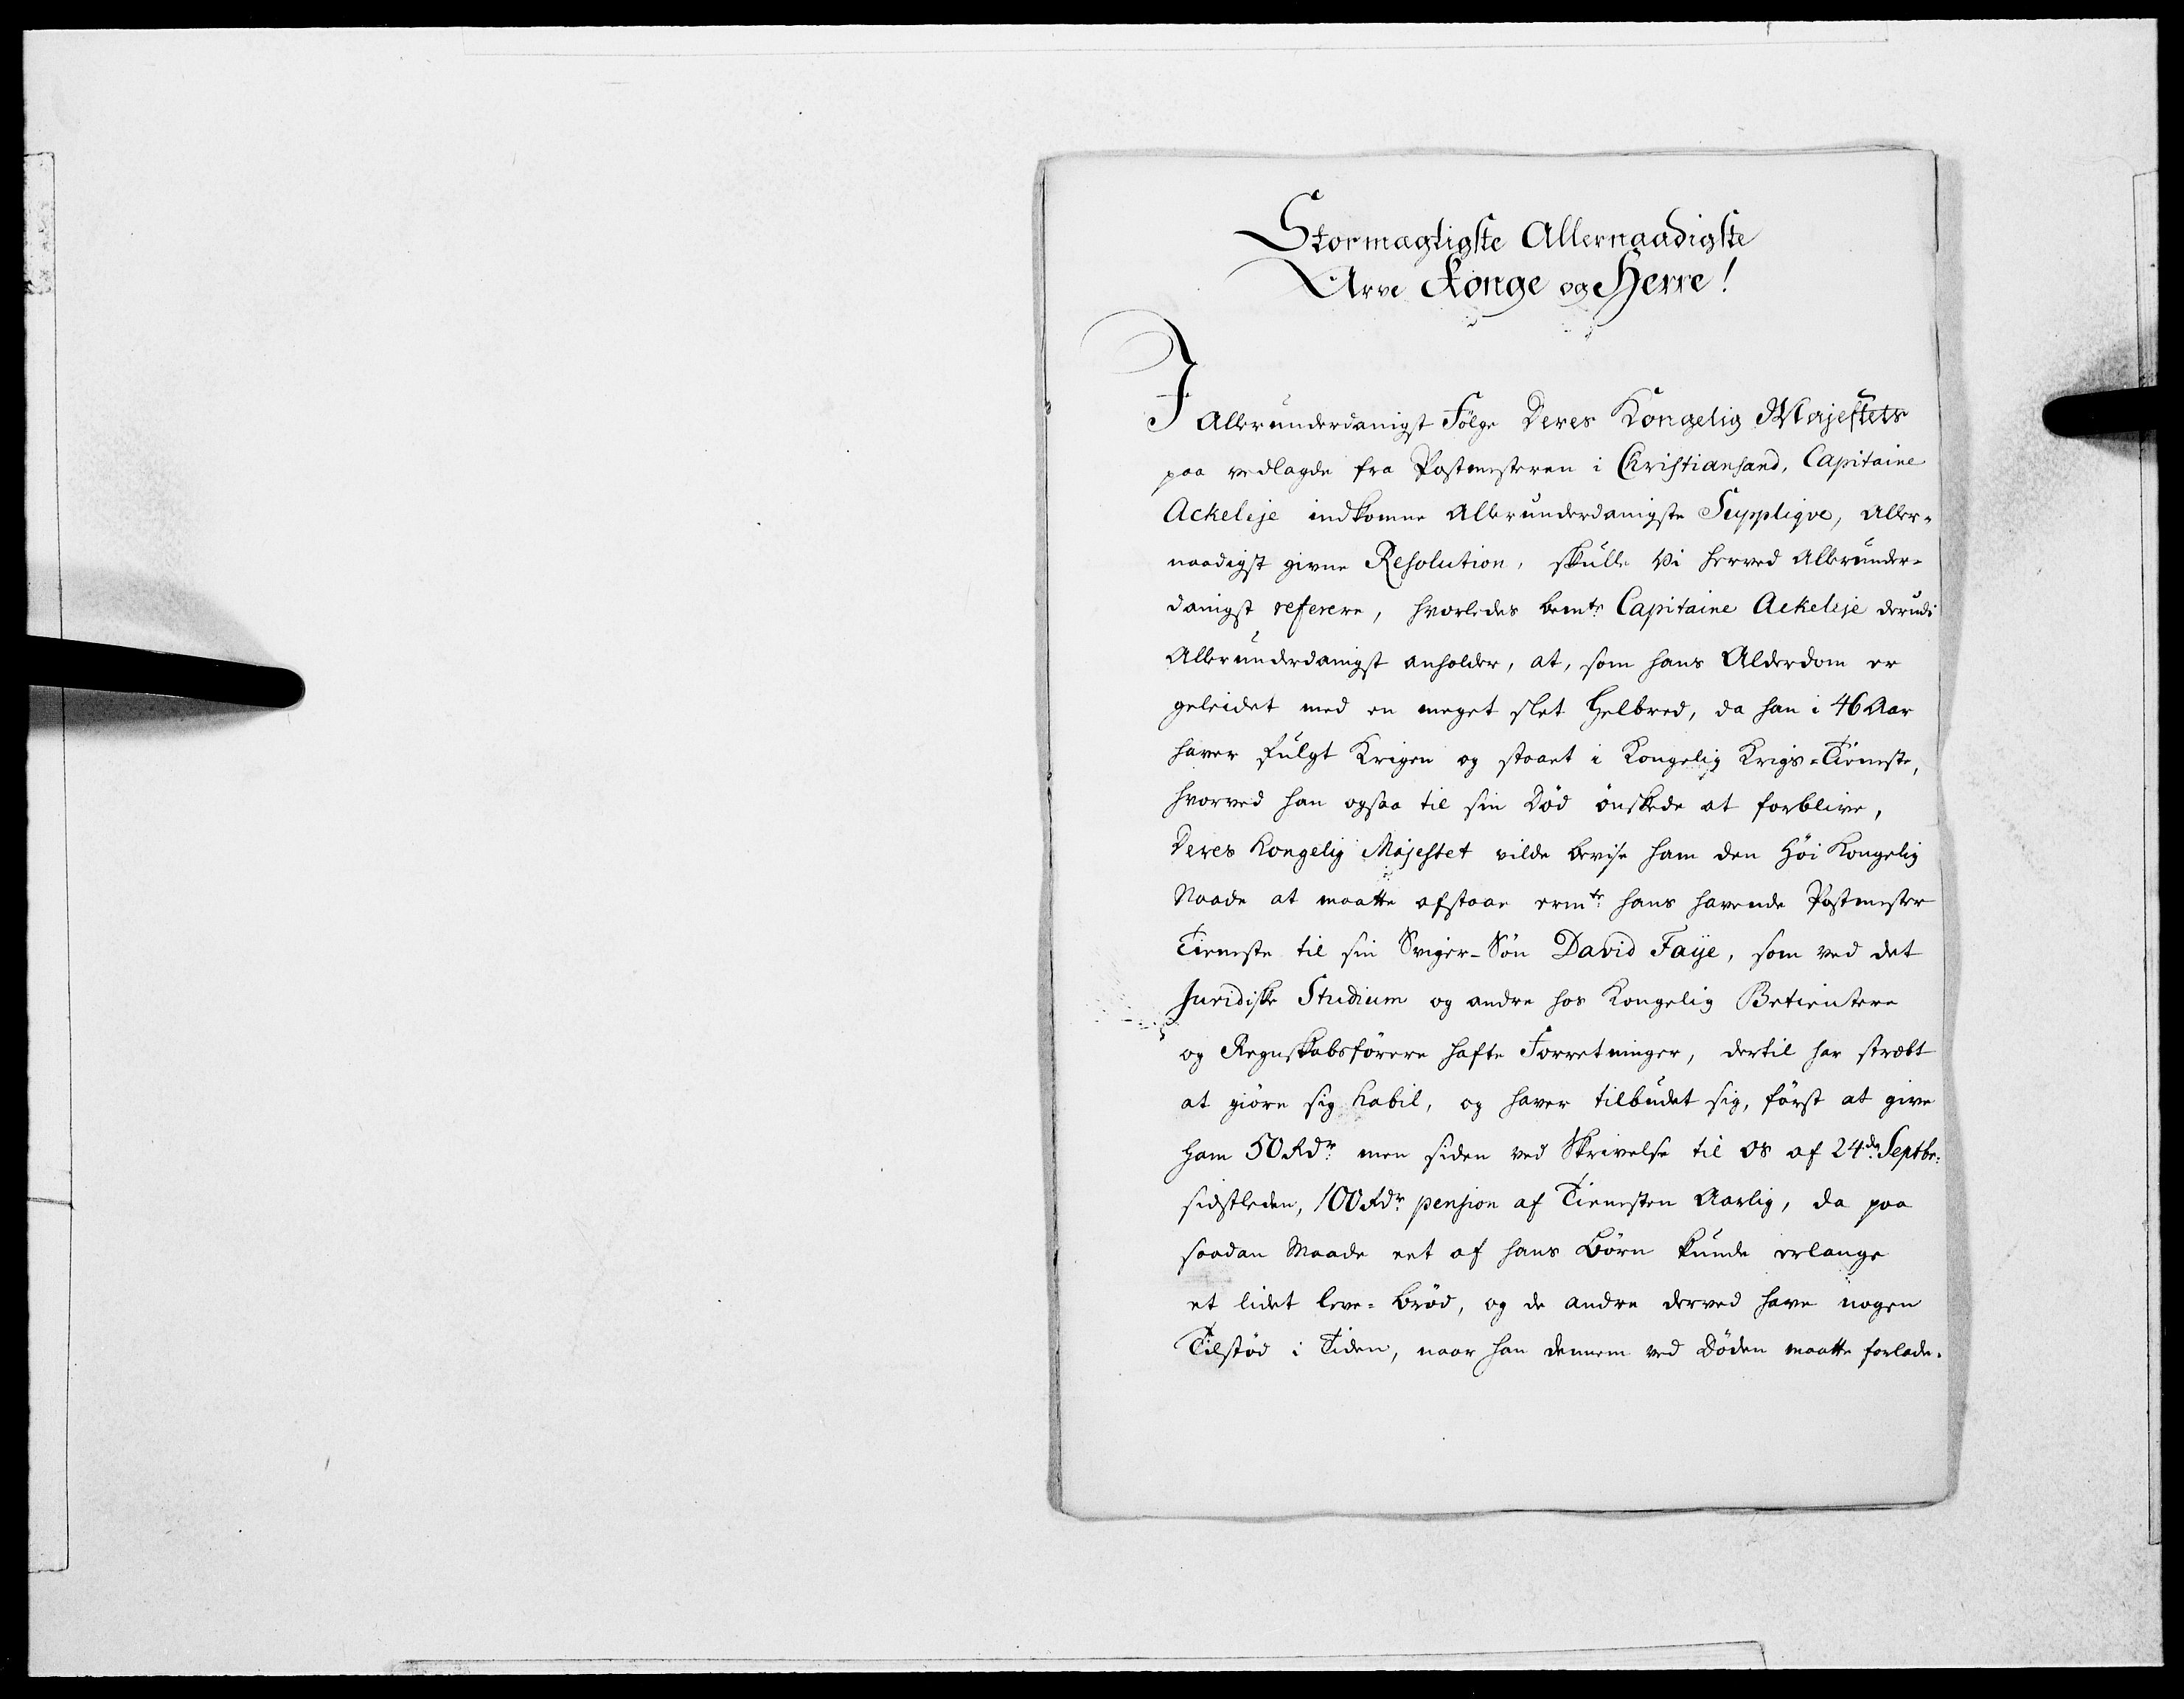 Stormægtigste Allernaadigste
Arve Konge og Herre!
I Allerunderdanigst Følge Deres Kongelig Majestets
paa vedlagde fra Postmesteren i Christiansand, Capitaine
Ackeleje indkomne Allerunderdanigste Suppliqve, Aller-
naadigst givne Resolution, skulle Vi herved Allerunder-
danigst referere, hvorledes bemte Capitaine Ackeleje derudi
Allerunderdanigst anholder, at, som hans Alderdom er
geleidet med en meget slet Helbred, da han i 46 Aar
haver fulgt Krigen og staaet i Kongelig Krigs-Tieneste,
hvorved han ogsaa til sin Død ønskede at forblive,
Deres Kongelig Majestet vilde bevise ham den Høi Kongelig
Naade at maatte afstaae ermte hans havende Postmester
Tieneste til sin Sviger-Søn David Faÿe, som ved det
Juridiske Studium og andre hos Kongelig Betientere
og Regnskabsførere hafte Forretninger, dertil har stræbt
at giøre sig habil, og haver tilbudet sig, først at give
ham 50 Rdr. men siden ved Skrivelse til os af 24de Septbr:
sidstleden, 100 Rdr. pension af Tienesten Aarlig, da paa
saadan Maade eet af hans Børn kunde erlange
et lidet leve-Brød, og de andre derved have nogen
Tilstød i Tiden, naar han dennem ved Døden maatte forlade.